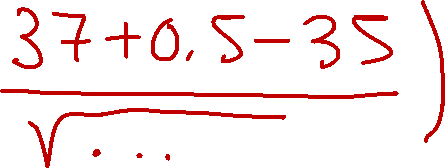 37+0.5-35 )
√...